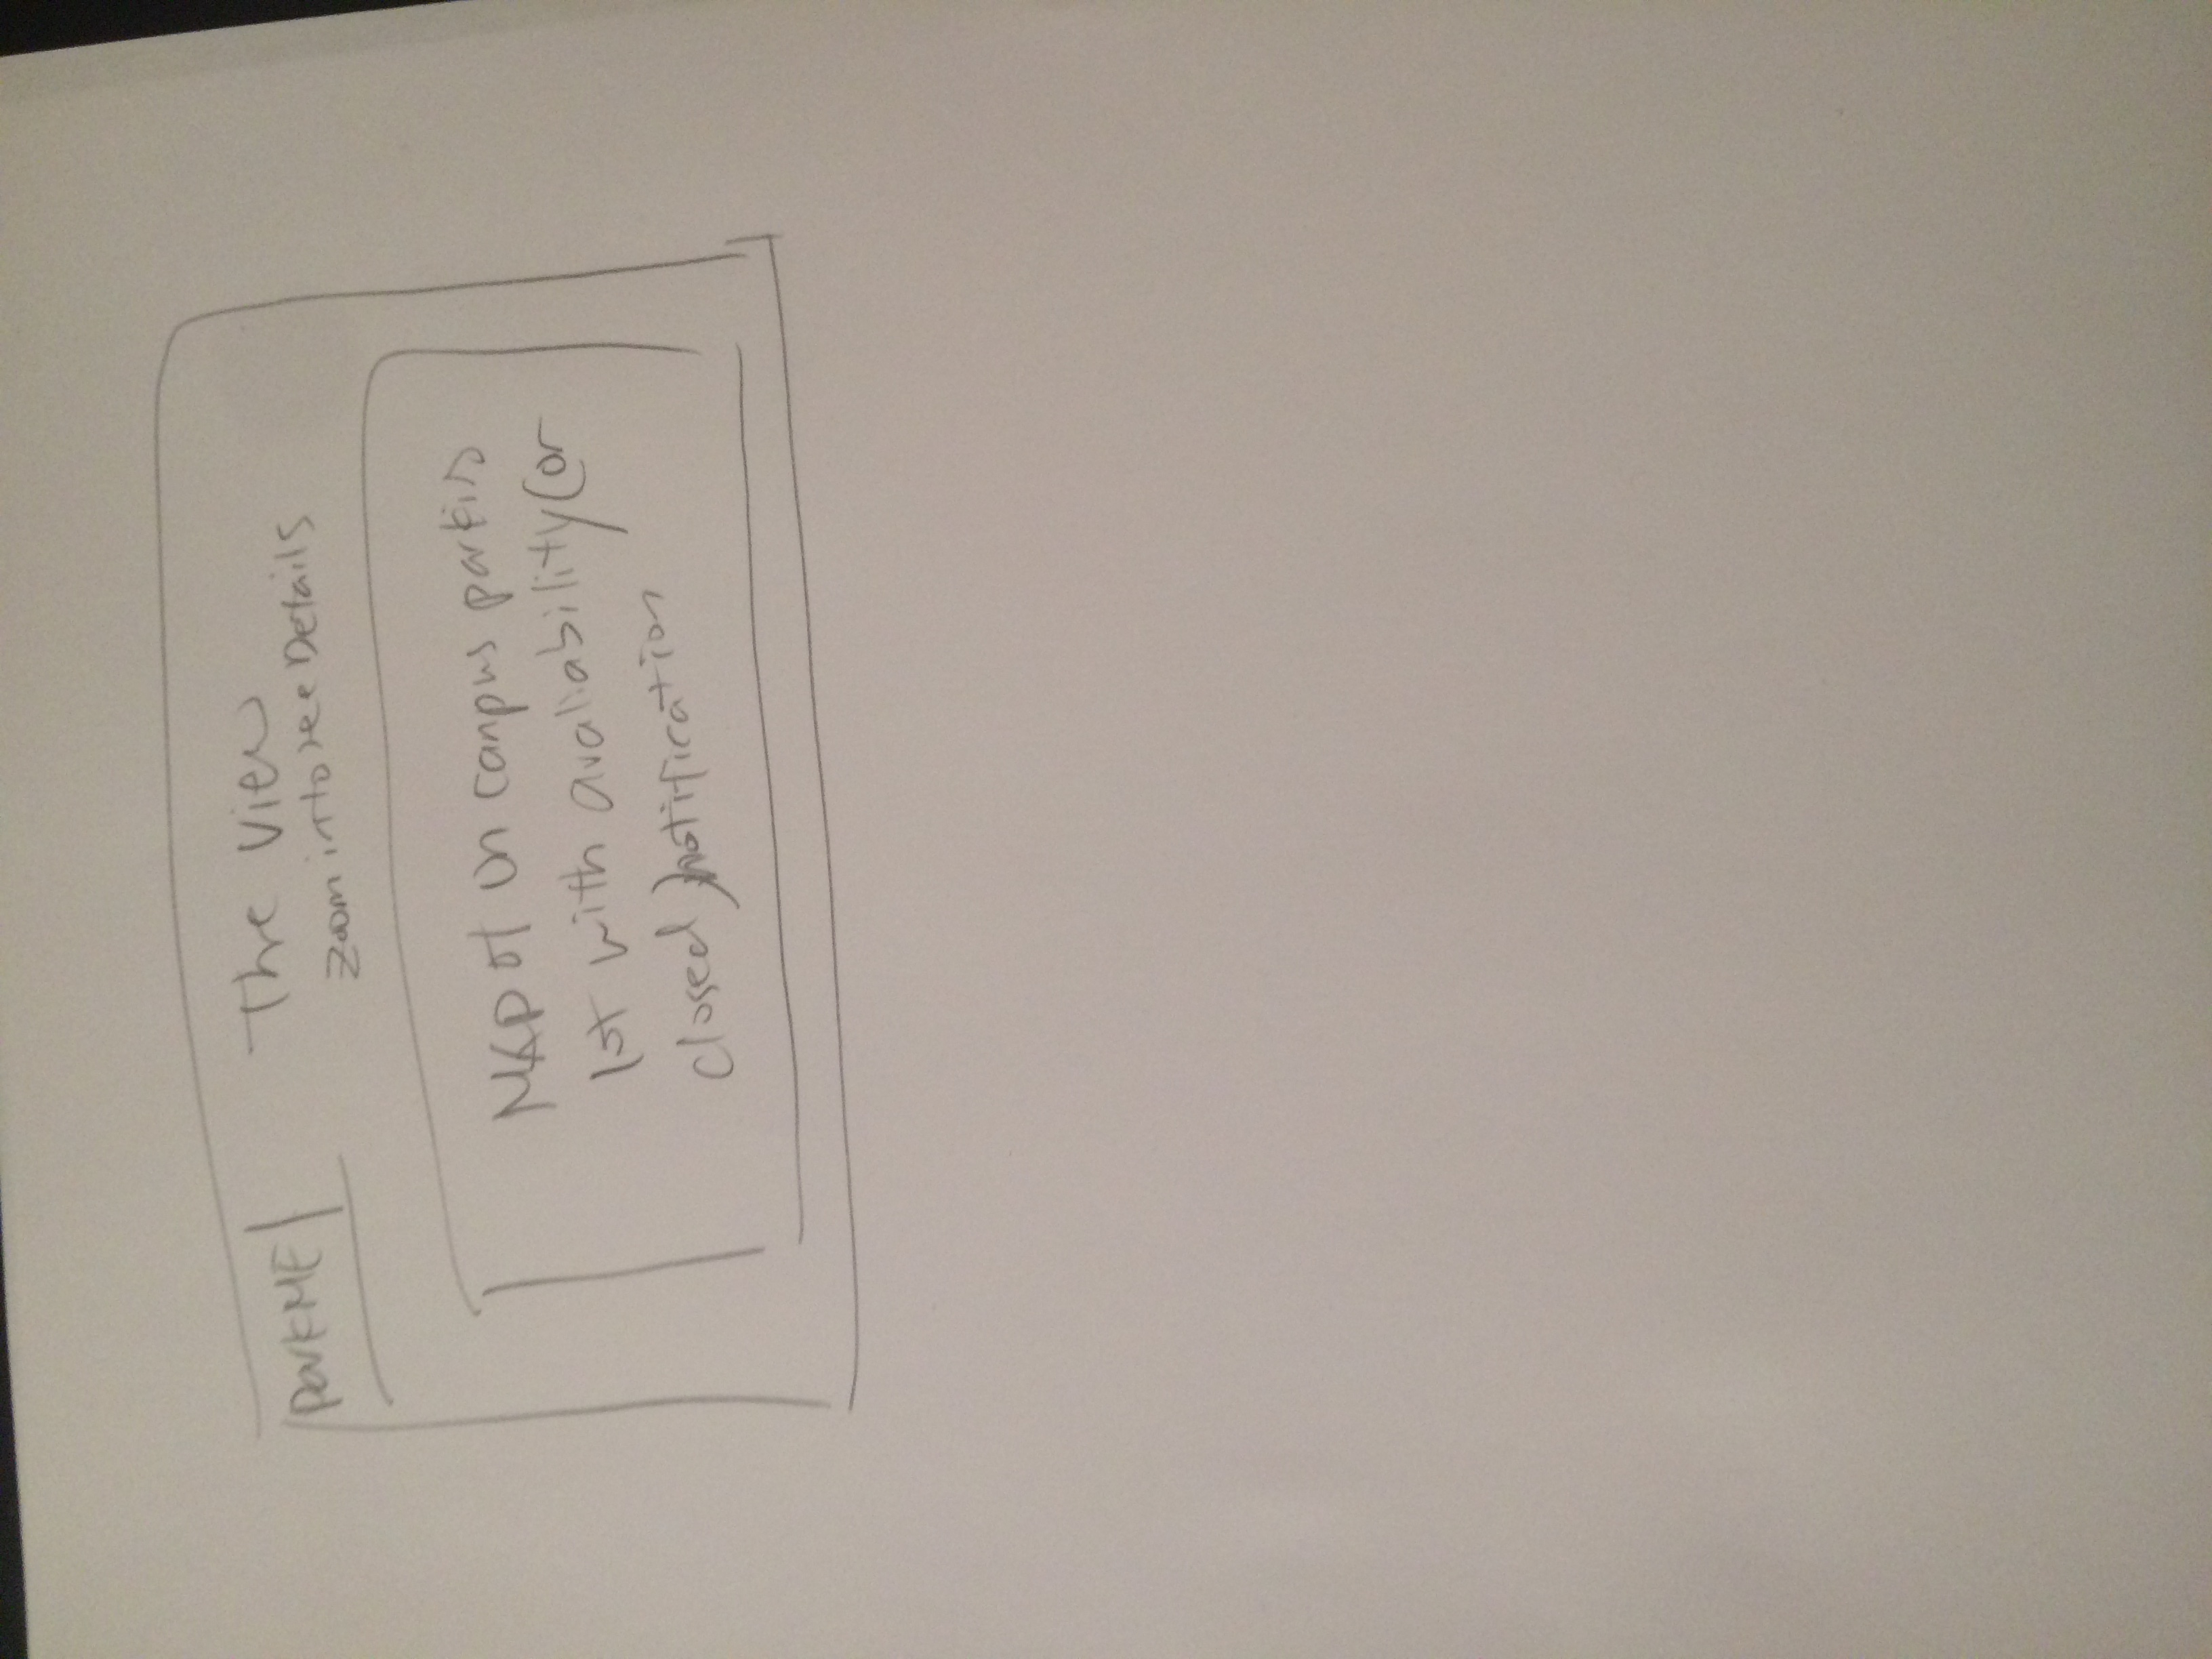 ParkME
The View
Zoom in to see Details
MAP of on campus parking
lot with avaliability (or
closed) notification